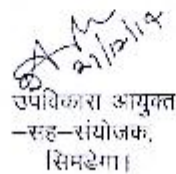 21/12/19
उपविकास आयुक्त
–सह–संयोजक,
सिमडेगा।